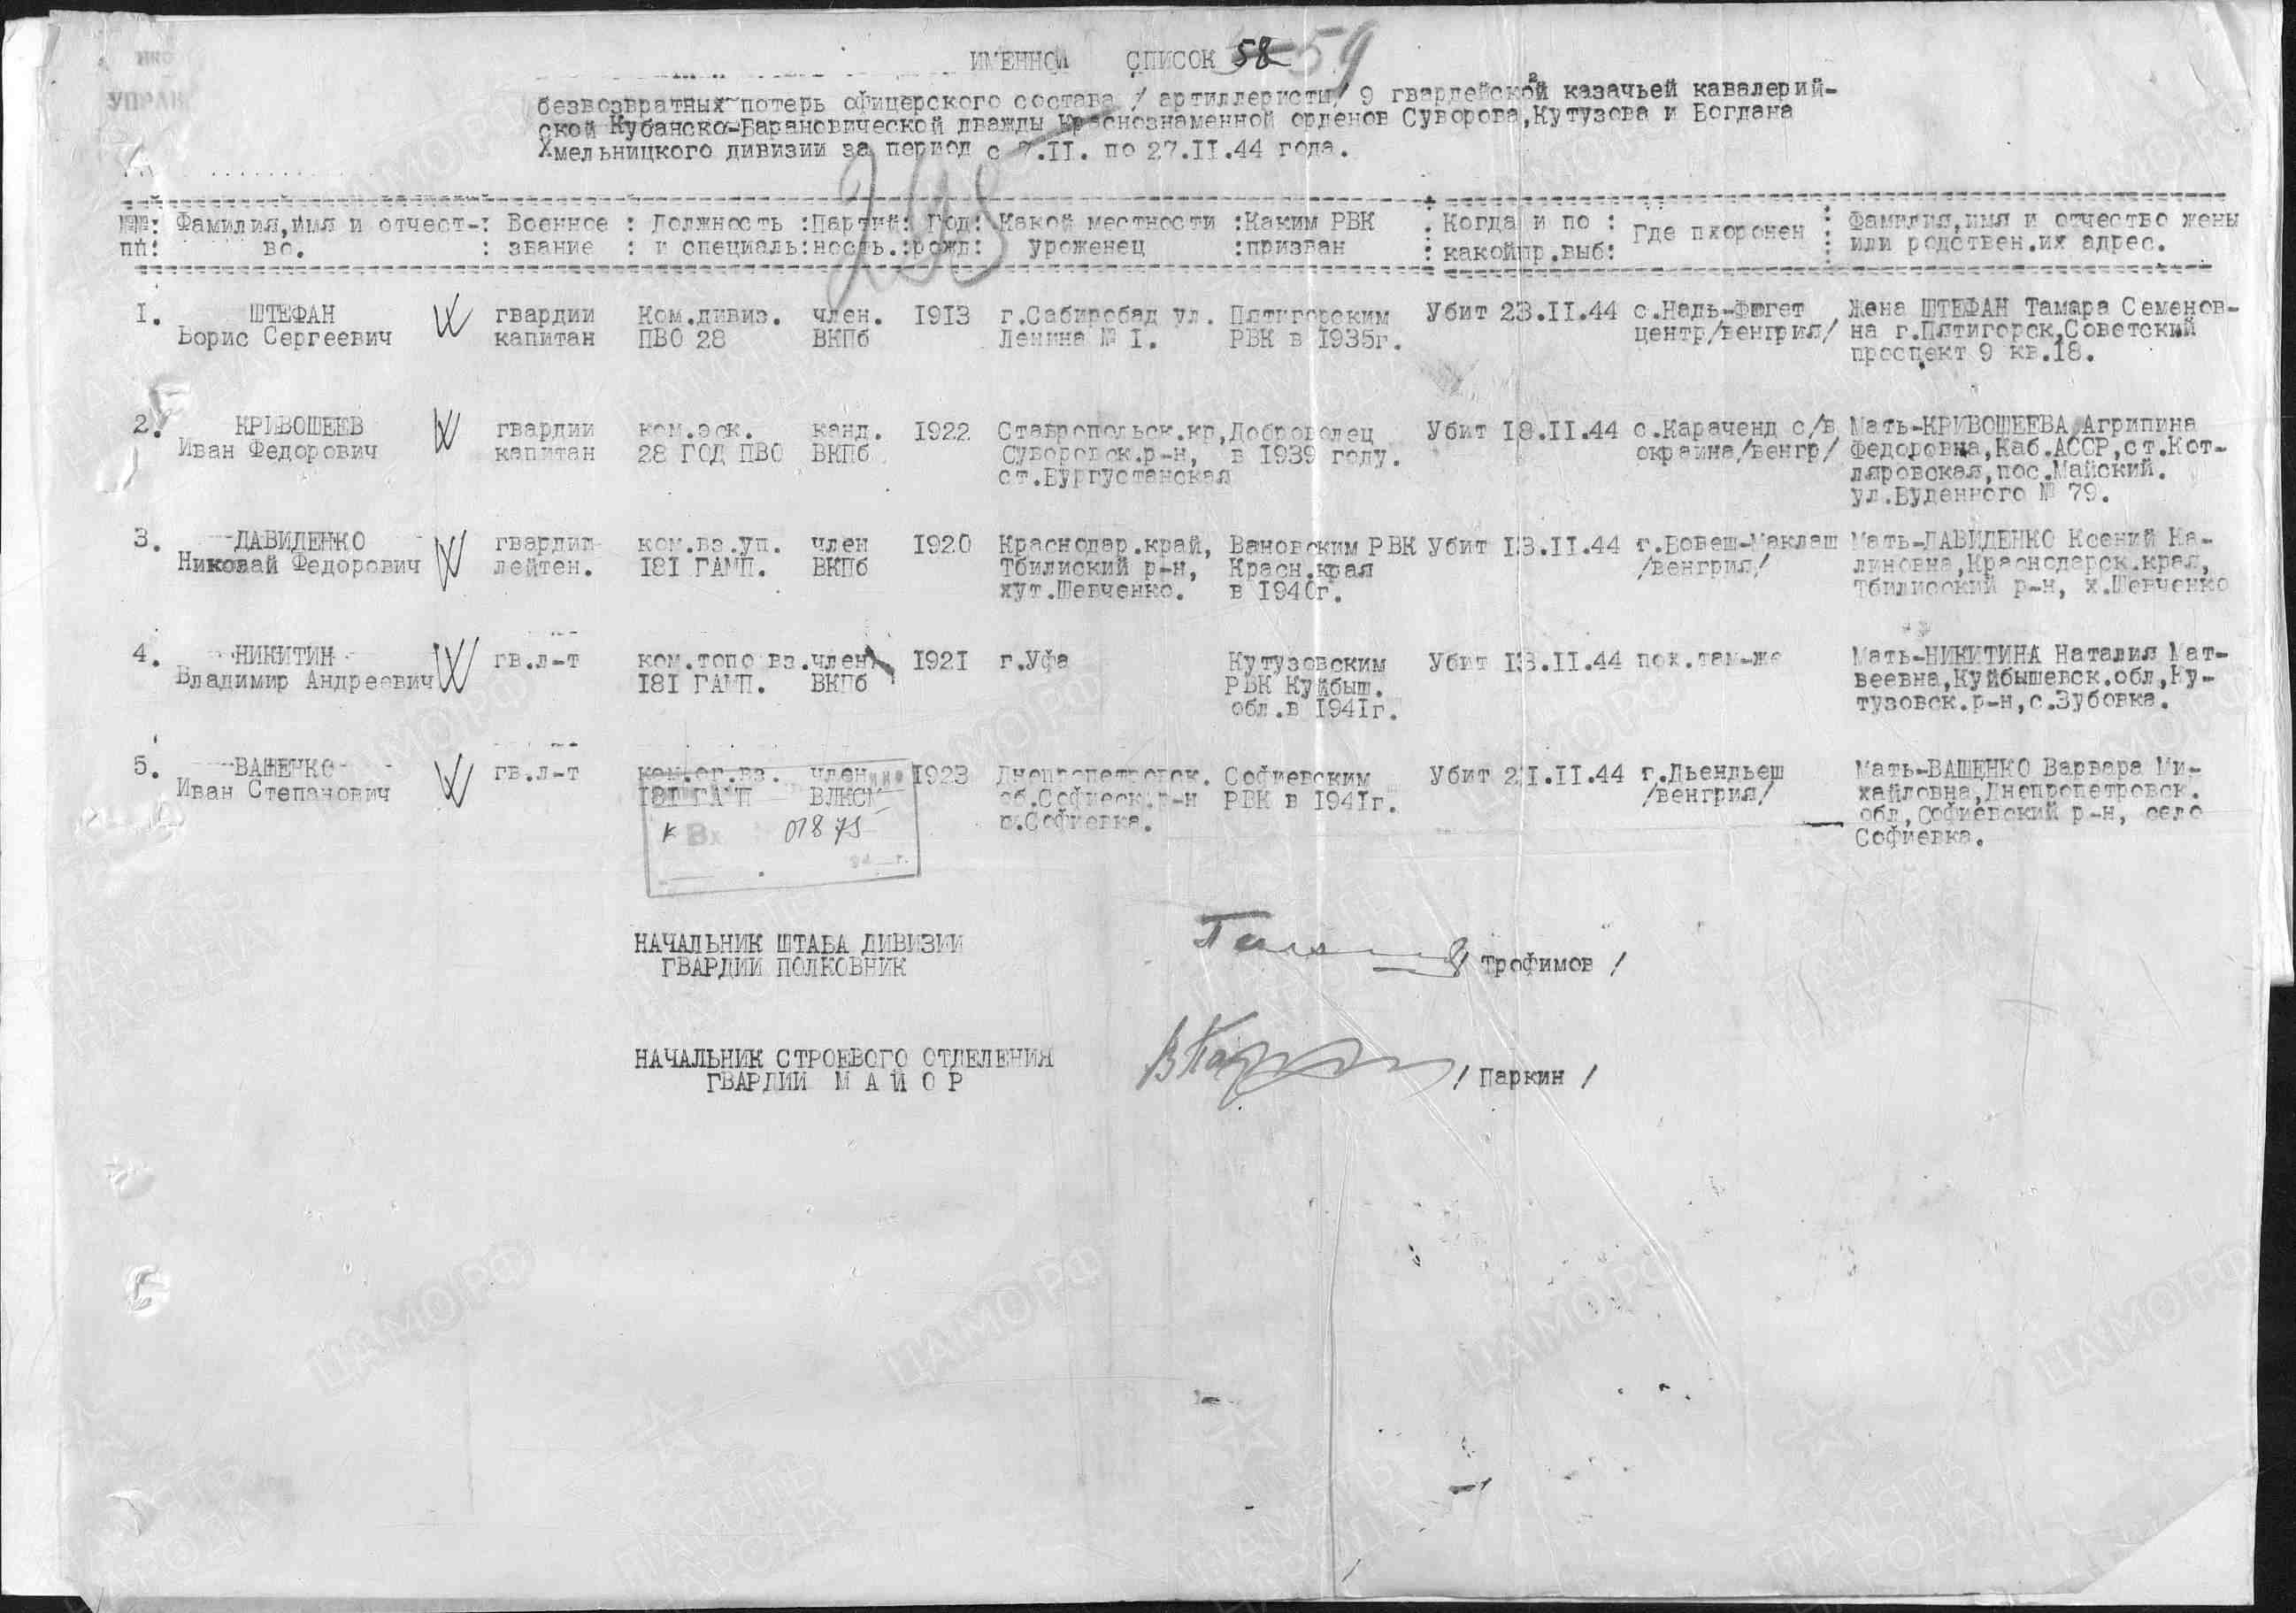 ИМЕННОЙ СПИСОК 58 59
УПРАВ
безвозвратных потерь офицерского состава / артиллеристы/ 9 гвардейской казачьей кавалерий-
ской Кубанско-Барановической дважды Краснознаменной орденов Суворова,Кутузова и Богдана
Хмельницкого дивизии за период с 7.II. по 27.II.44 года.
№№: Фамилия,имя и отчест-: Военное : Должность :Партий: Год: Какой местности :Каким РВК : Когда и по : Где пхоронен : Фамилия,имя и отчество жены
пп: во. : звание : и специаль:ность.:рожд: уроженец :призван : какойпр.выб: или родствен.их адрес.
I. ШТЕФАН гвардии Ком.дивиз. член. I9I3 г.Сабирабад ул. Пятигорским Убит 23.II.44 с.Надь-Фюгет Жена ШТЕФАН Тамара Семенов-
Борис Сергеевич капитан ПВО 28 ВКПб Ленина № I. РВК в I935г. центр/венгрия/ на г.Пятигорск,Советский
проспект 9 кв.I8.
2. КРИВОШЕЕВ гвардии ком.эск. канд. I922 Ставропольск.кр, Доброволец Убит I8.II.44 с.Караченд с/в Мать-КРИВОШЕЕВА Агрипина
Иван Федорович капитан 28 ГОД ПВО ВКПб Суворовск.р-н, в I939 году. окраина/венгр/ Федоровна,Каб.АССР,ст.Кот-
ст.Бургустанская ляровская,пос.Майский.
ул.Буденного № 79.
3. ДАВИДЕНКО гвардии ком.вз.уп. член I920 Краснодар.край, Вановским РВК Убит I3.II.44 г.Вовеш-Маклаш Мать-ДАВИДЕНКО Ксений Ка-
Николай Федорович лейтен. I8I ГАМП. ВКПб Тбилиский р-н, Красн.края /венгрия/ линовна,Краснодарск.края,
хут.Шевченко. в I940г. Тбилисский р-н, х.Шевченко
4. НИКИТИН гв.л-т ком.топо вз. член I92I г.Уфа Кутузовским Убит I3.II.44 пох.там-же Мать-НИКИТИНА Наталия Мат-
Владимир Андреевич I8I ГАМП. ВКПб РВК Куйбыш. веевна,Куйбышевск.обл,Ку-
обл.в I94Iг. тузовск.р-н,с.Зубовка.
5. ВАШЕНКО гв.л-т ком.ог.вз. член I923 Днепропетровск. Софиевским Убит 2I.II.44 г.Дьендьеш Мать-ВАШЕНКО Варвара Ми-
Иван Степанович I8I ГАМП ВЛКСМ об.Софиеск.р-н РВК в I94Iг. /венгрия/ хайловна,Днепропетровск.
с.Софиевка. обл,Софиевский р-н, село
Софиевка.
Вх 01875
194 г.
НАЧАЛЬНИК ШТАБА ДИВИЗИИ
ГВАРДИИ ПОЛКОВНИК / Трофимов /
НАЧАЛЬНИК СТРОЕВОГО ОТДЕЛЕНИЯ
ГВАРДИИ М А Й О Р / Паркин /
ЦАМО РФ
ПАМЯТЬ НАРОДА